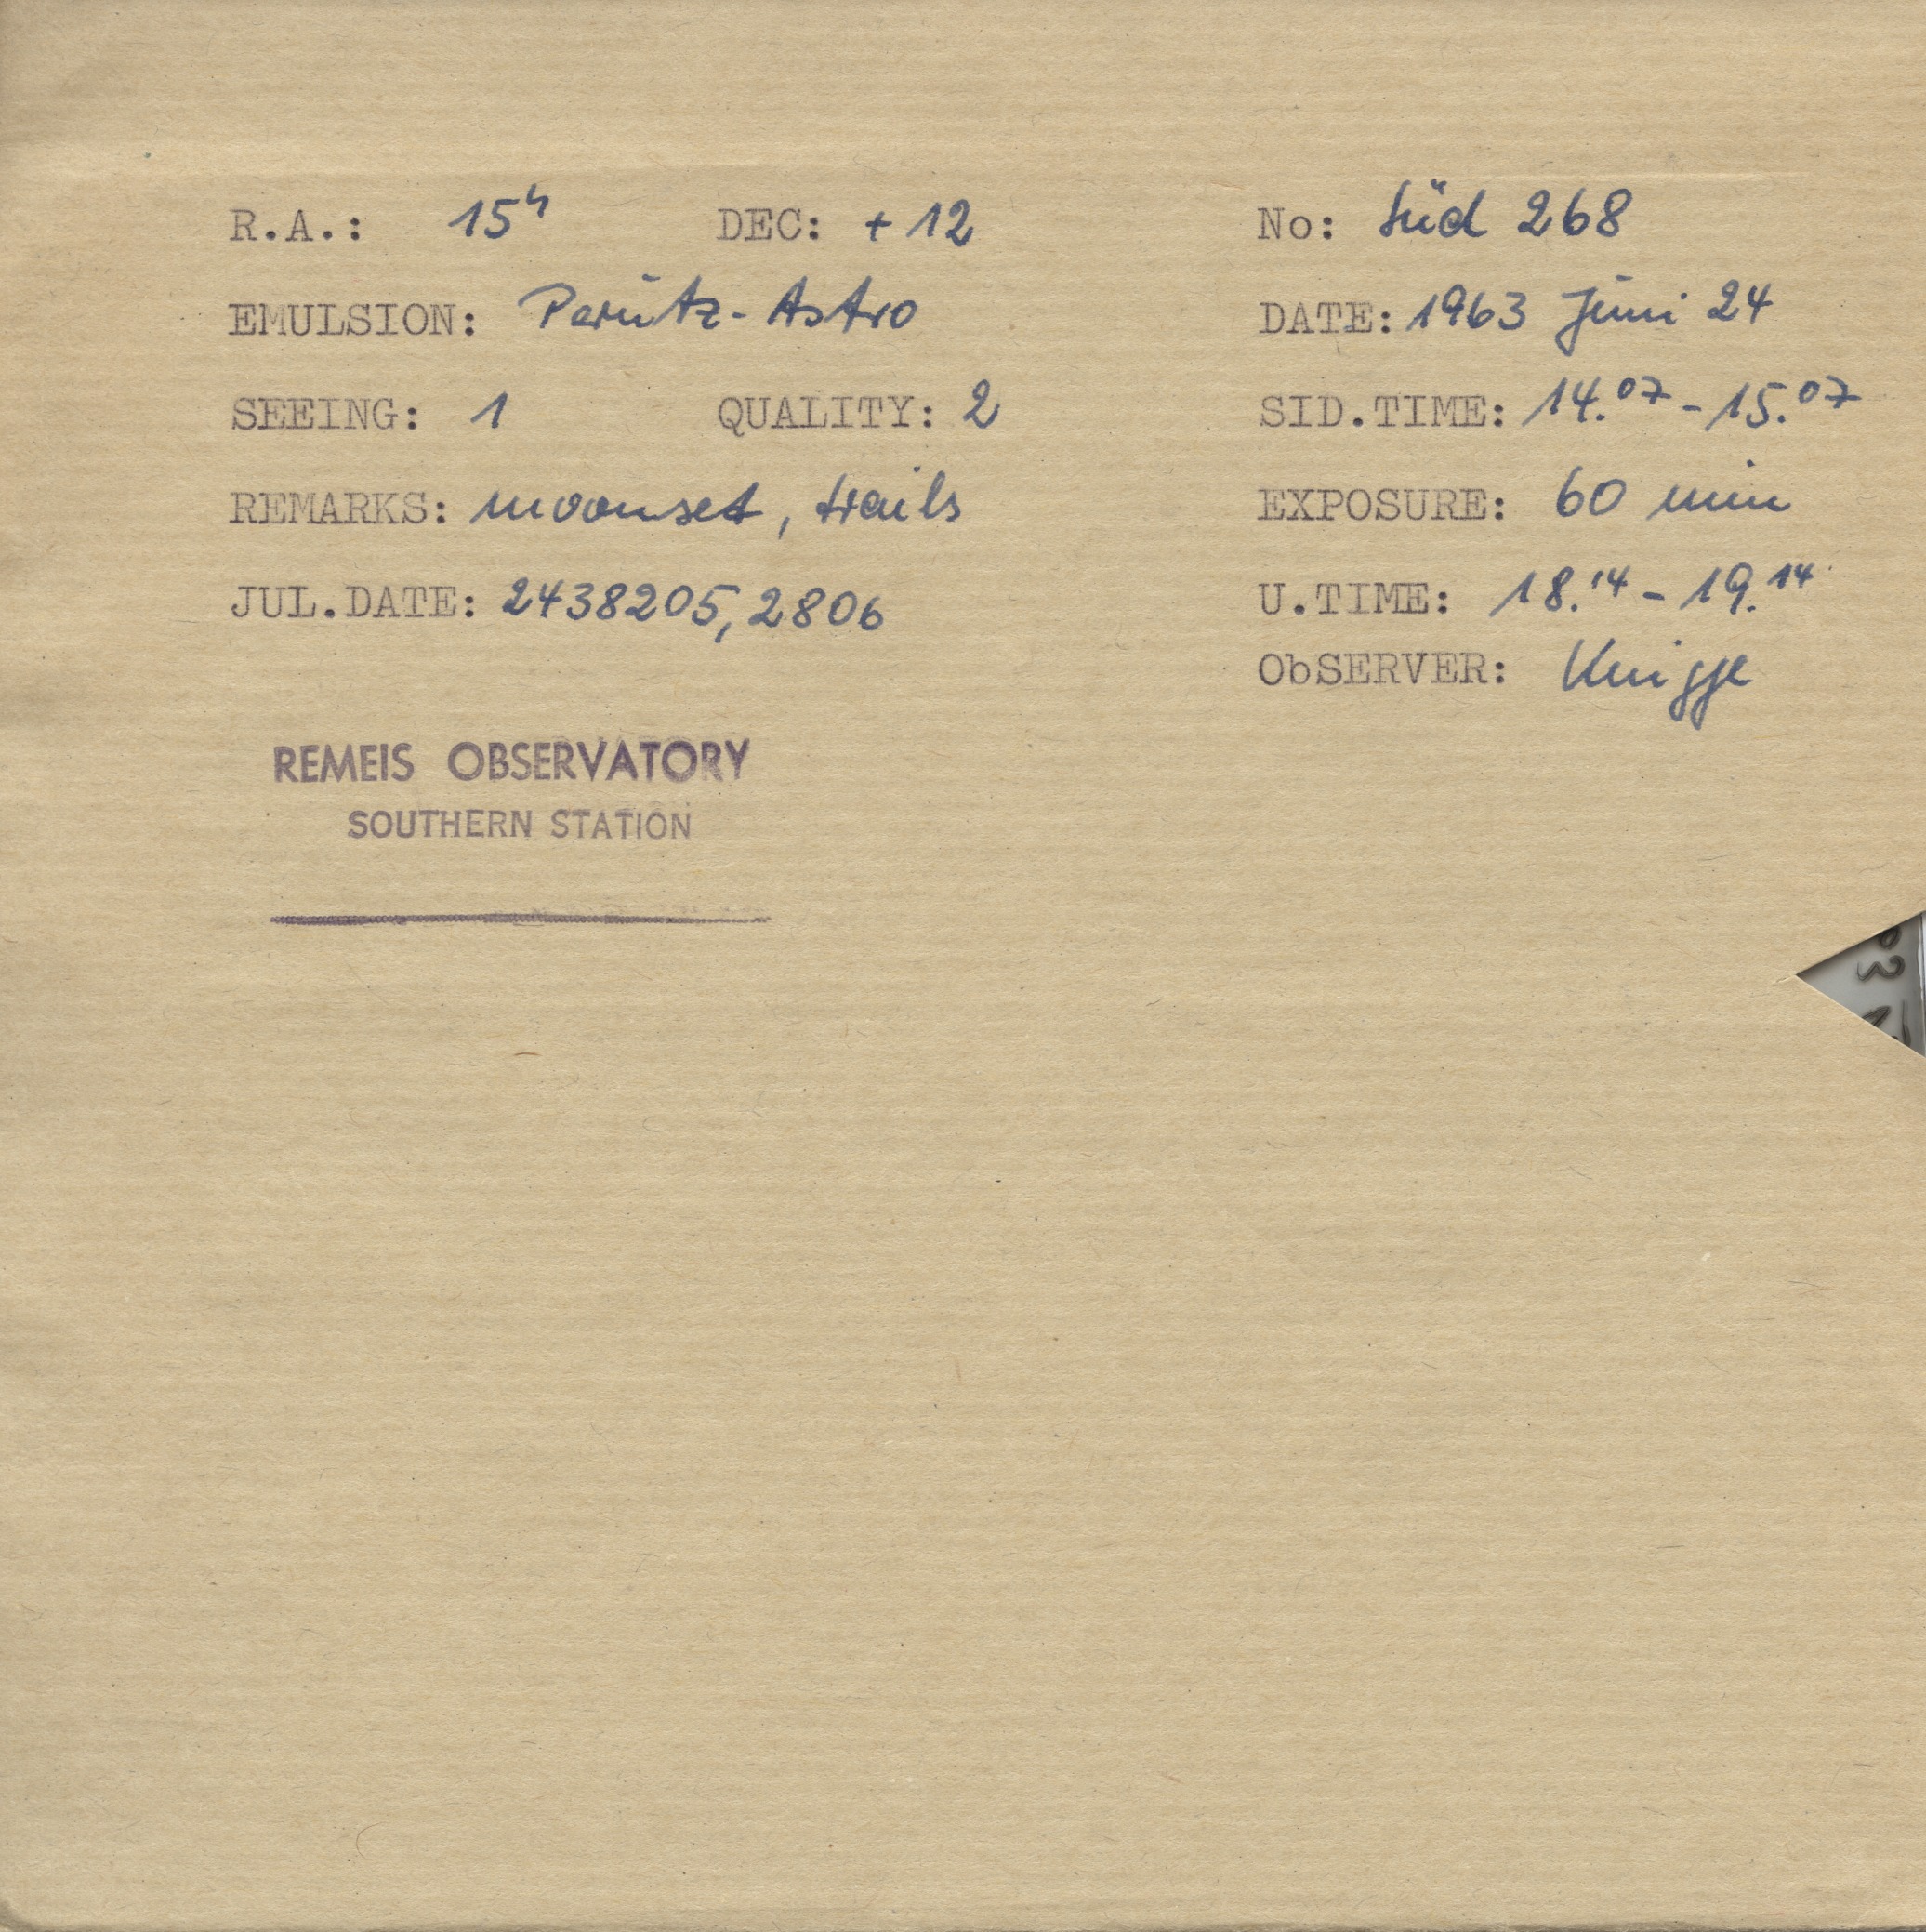 R.A.: 15h DEC: +12 No: Süd 268
EMULSION: Perutz-Astro DATE: 1963 Juni 24
SEEING: 1 QUALITY: 2 SID.TIME: 14.07 - 15.07
REMARKS: moonset, trails EXPOSURE: 60 min
JUL.DATE: 2438205,2806 U.TIME: 18.14 - 19.14
ObSERVER: Knigge
REMEIS OBSERVATORY
SOUTHERN STATION